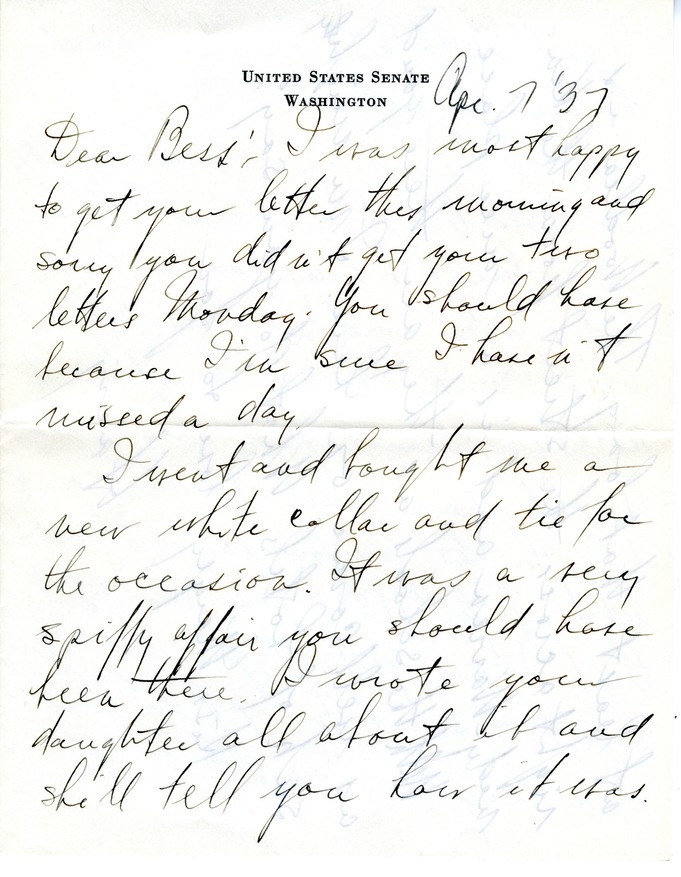 UNITED STATES SENATE
WASHINGTON
Apr. 7 '37
Dear Bess:, I was most happy
to get your letter this morning and
sorry you didn't get your two
letters Monday. You should have
because I'm sure I haven't
missed a day.
I went and bought me a
new white collar and tie for
the occasion. It was a very
spiffy affair you should have
been there. I wrote your
daughter all about it and
she'll tell you how it was.